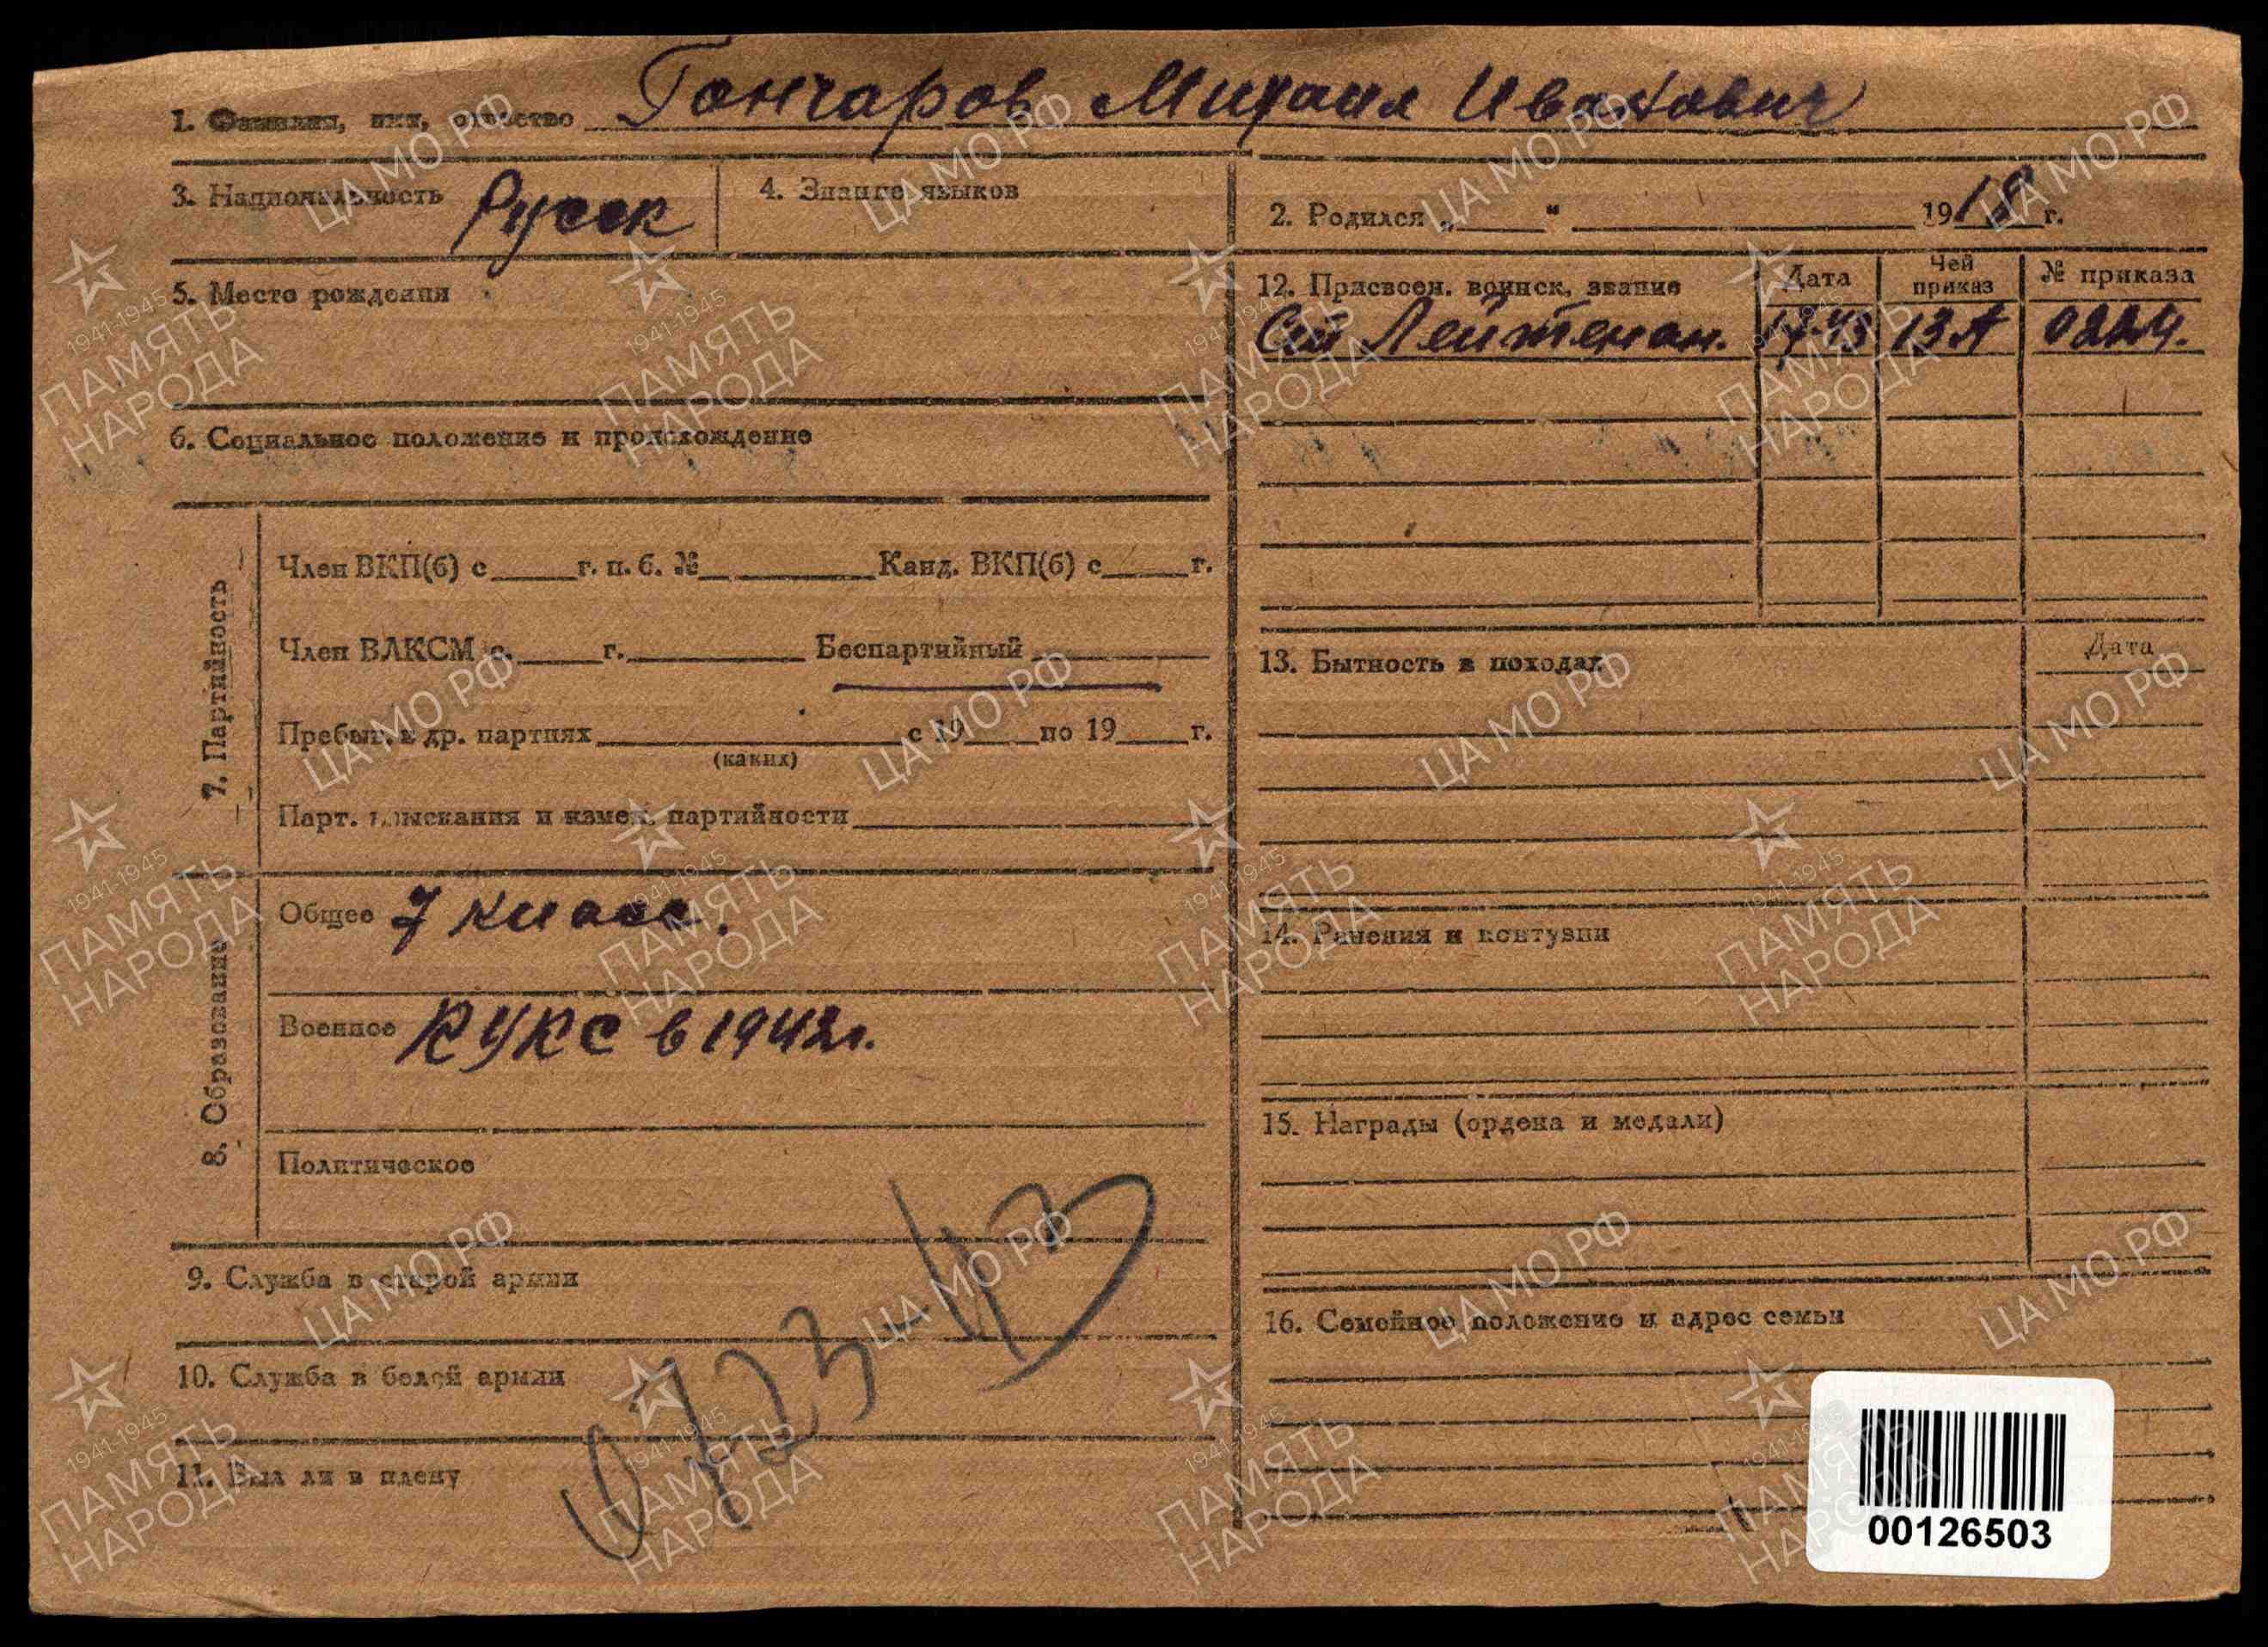 1. Фамилия, имя, отчество Гончаров Михаил Иванович
3. Национальность Русск
4. Знание языков
2. Родился „ “ 1918 г.
5. Место рождения
6. Социальное положение и происхождение
7. Партийность
Член ВКП(б) с г. п. б. № Канд. ВКП(б) с г.
Член ВЛКСМ с. г. Беспартийный
Пребыв. в др. партиях с 19 по 19 г.
(каких)
Парт. взыскания и измен. партийности
8. Образование
Общее 7 класс.
Военное КУКС в 1942г.
Политическое
9. Служба в старой армии
10. Служба в белой армии
11. Был ли в плену
0723-43
12. Присвоен. воинск. звание Дата Чей приказ № приказа
Ст Лейтенан. 13А
13. Бытность в походах Дата
14. Ранения и контузии
15. Награды (ордена и медали)
16. Семейное положение и адрес семьи
00126503
ЦА МО РФ
1941-1945
ПАМЯТЬ
НАРОДА